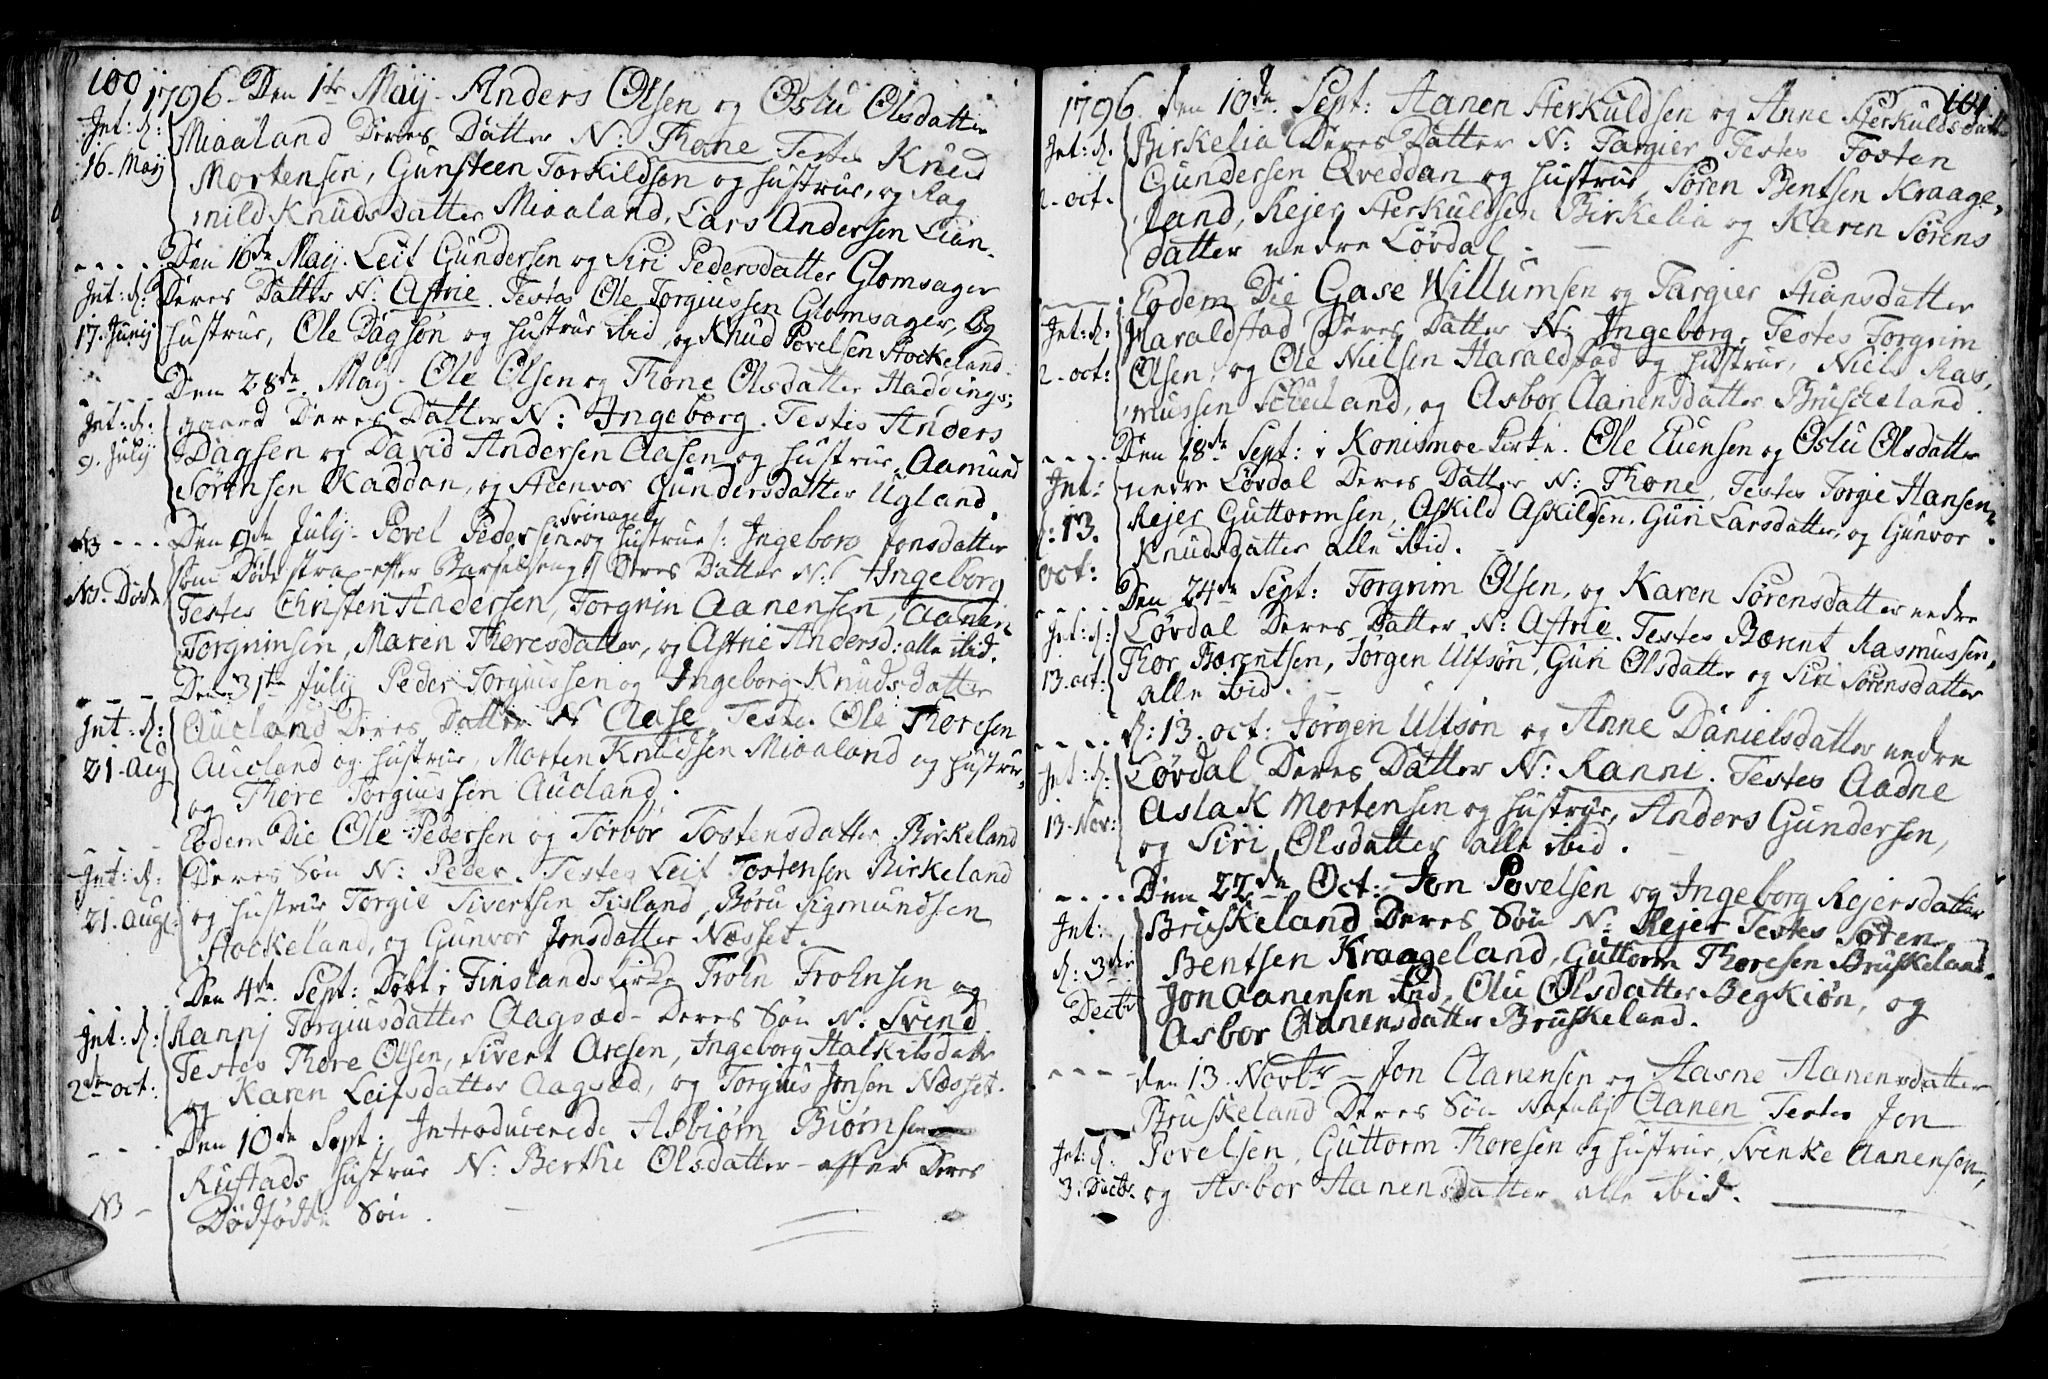 100
1796. Den 1te May. Anders Olsen og Oslu Olsdatter
Int: d: Miaaland Deres Datter N: Thone Testes Knud
16. May Mortensen, Gunsteen Torkildsøn og hustrue, og Rag
nild Knudsdatter Miaaland, Lars Andersen Lian.
Den 16de May. Leif Gundersen og Siri Pedersdatter Glomsager
Int: d: Deres Datter N: Astrie. Testes Ole Torgiussen Glomsager, Og
17. Junij hustrue, Ole Dagsøn og hustrue ibid, og Knud Povelsen Stockeland.
Den 28de May. Ole Olsen og Thone Olsdatter Haddings;
Int: d: gaard Deres Datter N: Ingeborg. Testes Anders
9. July Dagsen og David Andersen Aasen og hustrue, Aamund
Sørensen Kaddan, og Steenvor Gundersdatter Ugland.
Den 9de July. Povel Pedersen Svinager og hustrue /: Ingeborg Jonsdatter
som Døde strax efter Barselseng :/ Deres Datter N: Ingeborg
N. Døde Testes Christen Andersen, Torgrim Aanensen, Aanen
Torgrimsen, Maren Thoresdatter, og Astrie Andersd: alle ibid.
Den 31te July Peder Torgiussen og Ingeborg Knudsdatter
Int: d: Aucland Deres Datter N Aase Testes Ole Thoresen
21. Aug Aucland og hustrue, Morten Knudsen Miaaland og hustrue,
og Thore Torgiussen Aucland.
Eodem Die Ole Pedersen og Torbor Tostensdatter Birkeland
Int: d: Deres Søn N: Peder. Testes Leif Tostensen Birkeland
21. Aug: og hustrue Torgie Sivertsen Tisland, Børu Sigmundssen
Stockeland, og Gunvor Jonsdatter Næsset.
Den 4de Sept: Døbt i Finslands kirke Troln Trolnsen og
Int: d: Rannj Torgiusdatter Aagsæd Deres Søn N. Svend
Testes Thore Olsen, Sivert Aresen, Ingeborg Halkilsdatter
2de oct: og Karen Leifsdatter Aagsæd, og Torgius Jonsen Næsset.
Den 10de Sept: Introducerede Asbiørn Biørnsen
Rustads hustrue N: Berthe Olsdatter efter Deres
NB Dødfødde Søn.
101.
1796. den 10de Sept: Aanen Herkuldsen og Anne Herkuldsdatter
Int: d. Birkelia Deres Datter N: Targier Testes Tosten
2. oct. Gundersen Qveddan og hustrue, Søren Bentsen Kraage,
land, Rejer Herkuldsen Birkelia og Karen Sørens
datter nedre Løvdal.
Eodem Die Gase Willumsen og Targier Stiansdatter
Int: d: Haraldstad Deres Datter N: Ingeborg. Testes Torgrim
2. oct: Olsen, og Ole Nielsen Haraldstad og hustrue, Niels Ras,
mussen Scheiland, og Asbor Aanensdatter Bruscheland.
Den 18de Sept: i Konismoe kirke. Ole Evensen og Oslu Olsdatter
Int: nedre Løvdal Deres Datter N: Thone. Testes Torgie Hansen,
d: 13. Rejer Guttormsen, Askild Askildsen, Guri Larsdatter, og Gunvor
oct: Knudsdatter alle ibid.
Den 24de Sept: Torgrim Olsen, og Karen Sørensdatter nedre
Int: d: Løvdal Deres Datter N: Astrie. Testes Børent Rasmussen,
13. oct: Thor Børentsen, Jørgen Ulfsøn, Guri Olsdatter og Siri Sørensdatter
alle ibid.
d: 13. oct: Jørgen Ulfsøn og Anne Danielsdatter nedre
Int: d: Løvdal Deres Datter N: Ranni. Testes Aadne
13. Nov: Aslak Mortensen og hustrue, Anders Gundersen,
og Siri Olsdatter alle ibid.
Den 22de Oct: Jon Povelsen og Ingeborg Rejersdatter
Int: Bruskeland Deres Søn N: Rejer Testes Søren
d: 3die Bentsen Kraageland, Guttorm Thoresen Bruskeland,
Decbr Jon Aanensen ibid, Olu Olsdatter Begkiøn, og
Asbor Aanensdatter Bruskeland.
den 13. Novbr Jon Aanensen og Aasne Aanensdatter
Bruskeland Deres Søn Nafnlig Aanen Testes Jon
Int: d. Povelsen, Guttorm Thoresen og hustrue, Svenke Aanensøn,
3. Decbr. og Asbor Aanensdatter alle ibid.